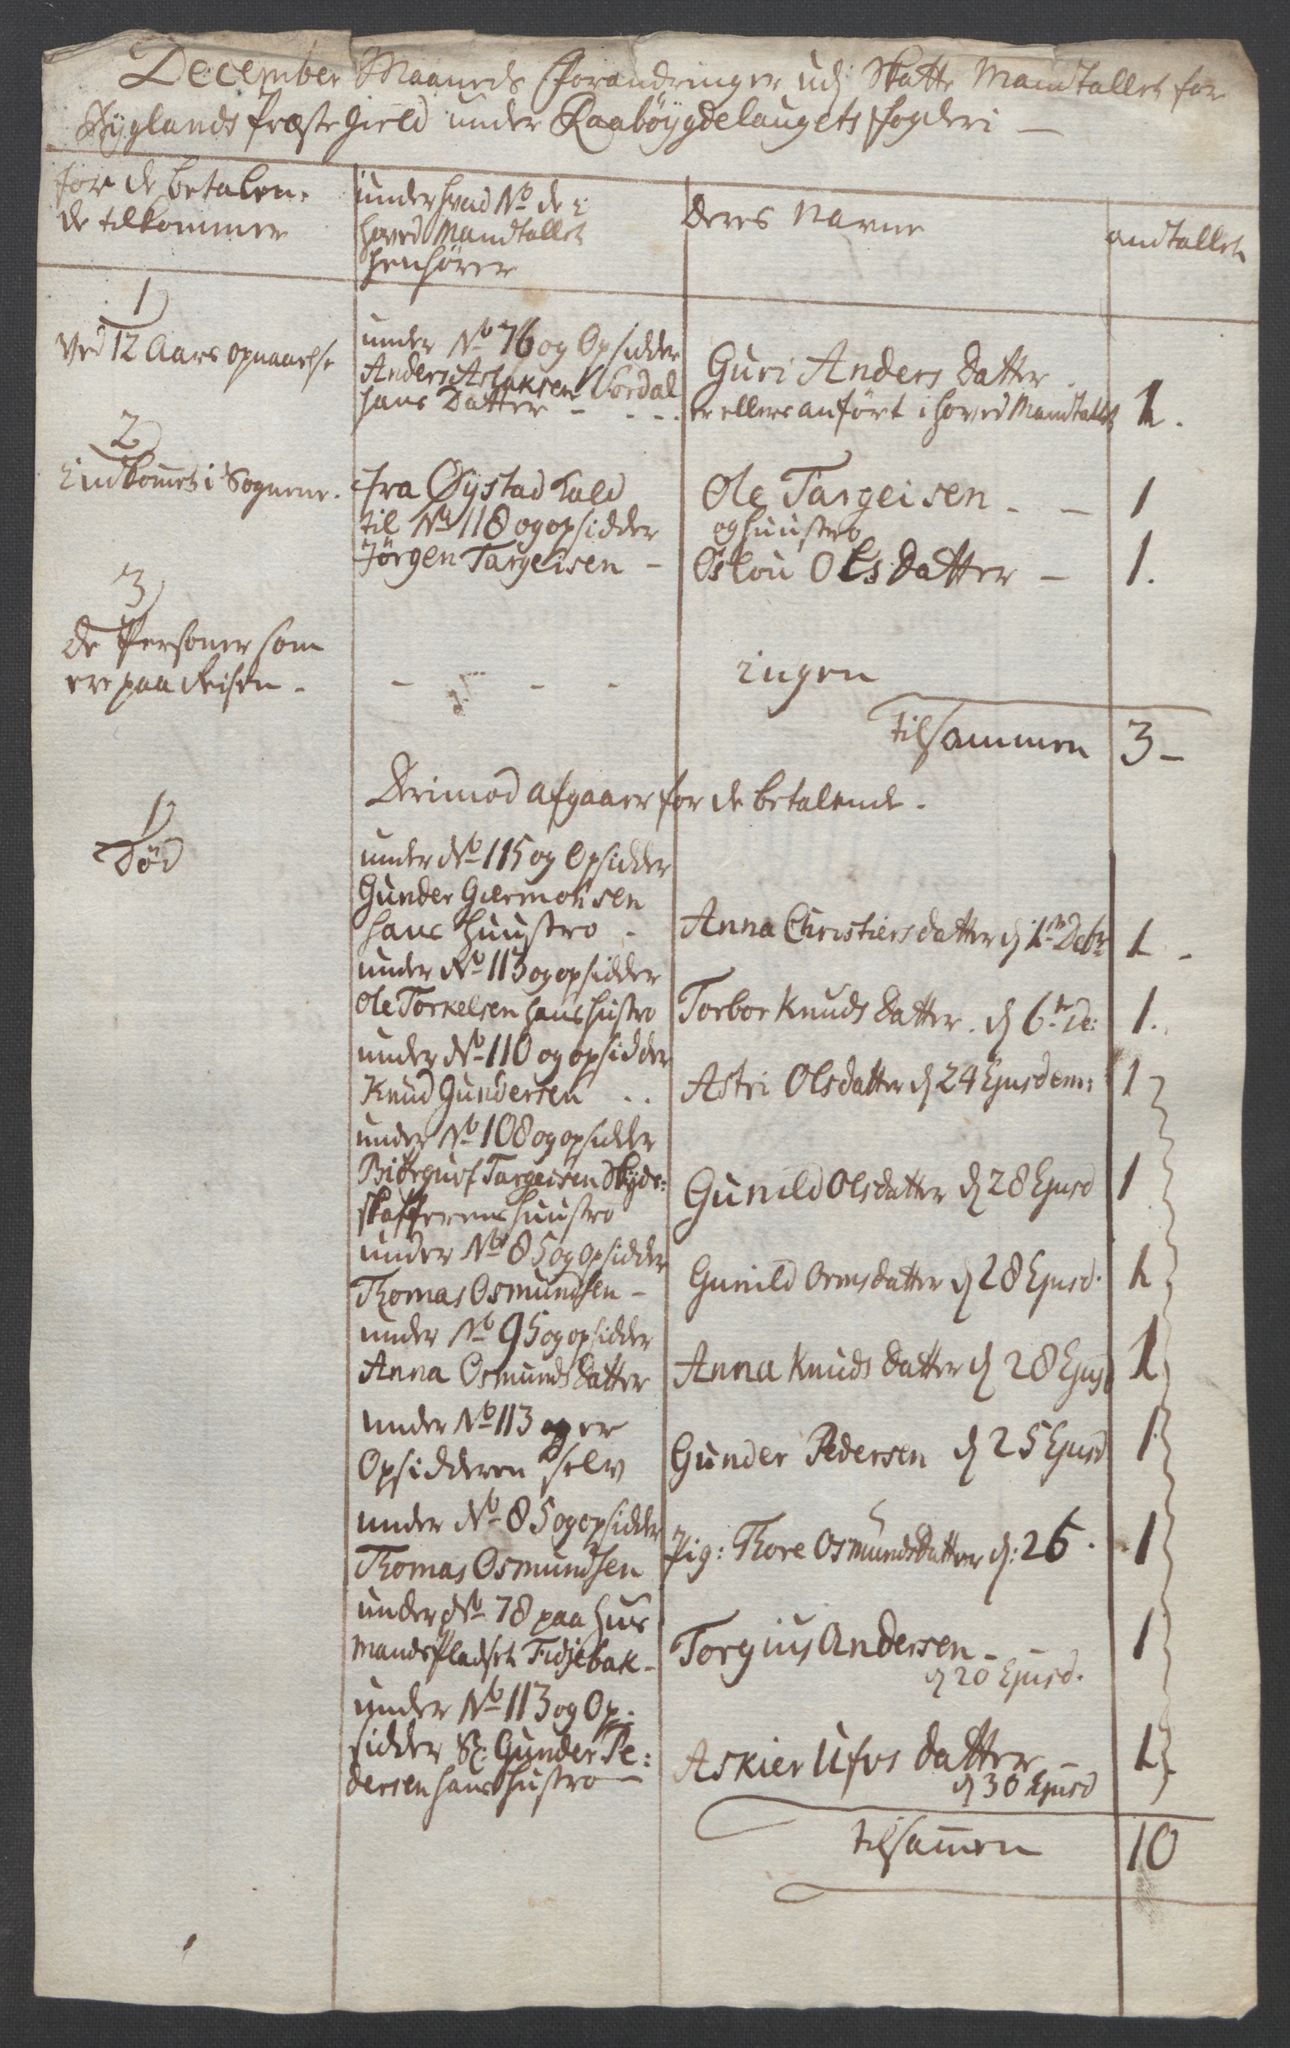 December Maaneds Forandringer udj Skatte Mandtallet for
Byglands Præste Gield under Raabøygdelaugets Fogderi —
for de betalen-
de tilkommer
under hvad No de i
hoved Mandtallet
henhører
Deres Navne
andtallet
1)
Ved 12 Aars opnaaelse
under No 76 og Opsidder
Anders Aslaksen Sordal
hans Datter - - - -
Guri Anders Datter
er ellers anført i hoved Mandtallet
1.
2)
Indkommet i Sognene.
fra Øystad Kald
til No 118 og opsidder
Jørgen Targeisen -
Ole Targeisen - - 1
og huustro
Oslou Ols Datter - 1.
3)
De Personer som
ere paa Reisen. - - - ingen
tilsammen 3-
Derimod afgaaer for de betalende.
1)
Død
under No 115 og Opsidder
Gunder Giermonsen
hans Huustro - Anna Christiersdatter d 1te Debr 1 -
under No 113 og opsidder
Ole Torkelsen hans hustro Torbor Knuds Datter. d 6te De: 1.
under No 110 og opsidder
Knud Gundersen .. Astri Olsdatter d 24 Ejusdem: 1
under No 108 og opsidder
Biørguf Targeisen Skyds:
skafferens huustro Gunild Olsdatter d 28 Ejusd 1
under No 85 og Opsidder
Thomas Osmundsen - Gunild Ormsdatter d 28 Ejusd. 1
under No 95 og opsidder
Anna Osmunds Datter Anna Knuds Datter d 28 Ejusd 1
under No 113 og er
Opsidderen selv Gunder Pedersen d 25 Ejusd 1
under No 85 og opsidder
Thomas Osmundsen Pig: Thore Osmunds Datter d: 26. 1
under No 78 paa Huus
mands Pladset Fidjebak- Torgius Andersen - - 1
d 20 Ejusd.
under No 113 og Op-
sidder Sr. Gunder Pe:
dersen hans hustro - Askier Ufvs datter - 1
d 30 Ejusd
tilsamen 10